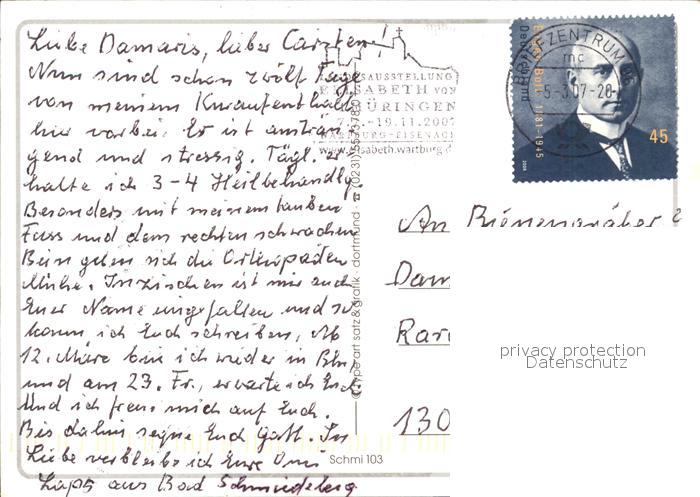 Liebe Damaris, lieber Carsten!
Nun sind schon zwölf Tage
von meinem Kuraufenthalt
hier vorbei. Es ist anstren
gend und stressig. Tägl. er-
halte ich 3-4 Heilbehandlg.
Besonders mit meinem tauben
Fuss und dem rechten schwachen
Bein geben sich die Orthopäden
Mühe. Inzwischen ist mir auch
Euer Name eingefallen und so
kann ich Euch schreiben. Ab
12. März bin ich wieder in Bln
und am 23. Fr., erwarte ich Euch
Und ich freue mich auf Euch.
Bis dahin segne Euch Gott. In
Liebe verbleibe ich Eure Omi
aus Bad Schmiedeberg
LANDESAUSSTELLUNG
ELISABETH VON
THÜRINGEN
7.7.-19.11.2007
WARTBURG-EISENACH
www.elisabeth.wartburg.de
BRIEFZENTRUM 06
mc
-5.3.07-20
Deutschland
Eugen Bolz 1881-1945
45
type art satz & grafik · dortmund · ☎ (0231)
Schmi 103
An
Dam
Rar
130
privacy protection
Datenschutz